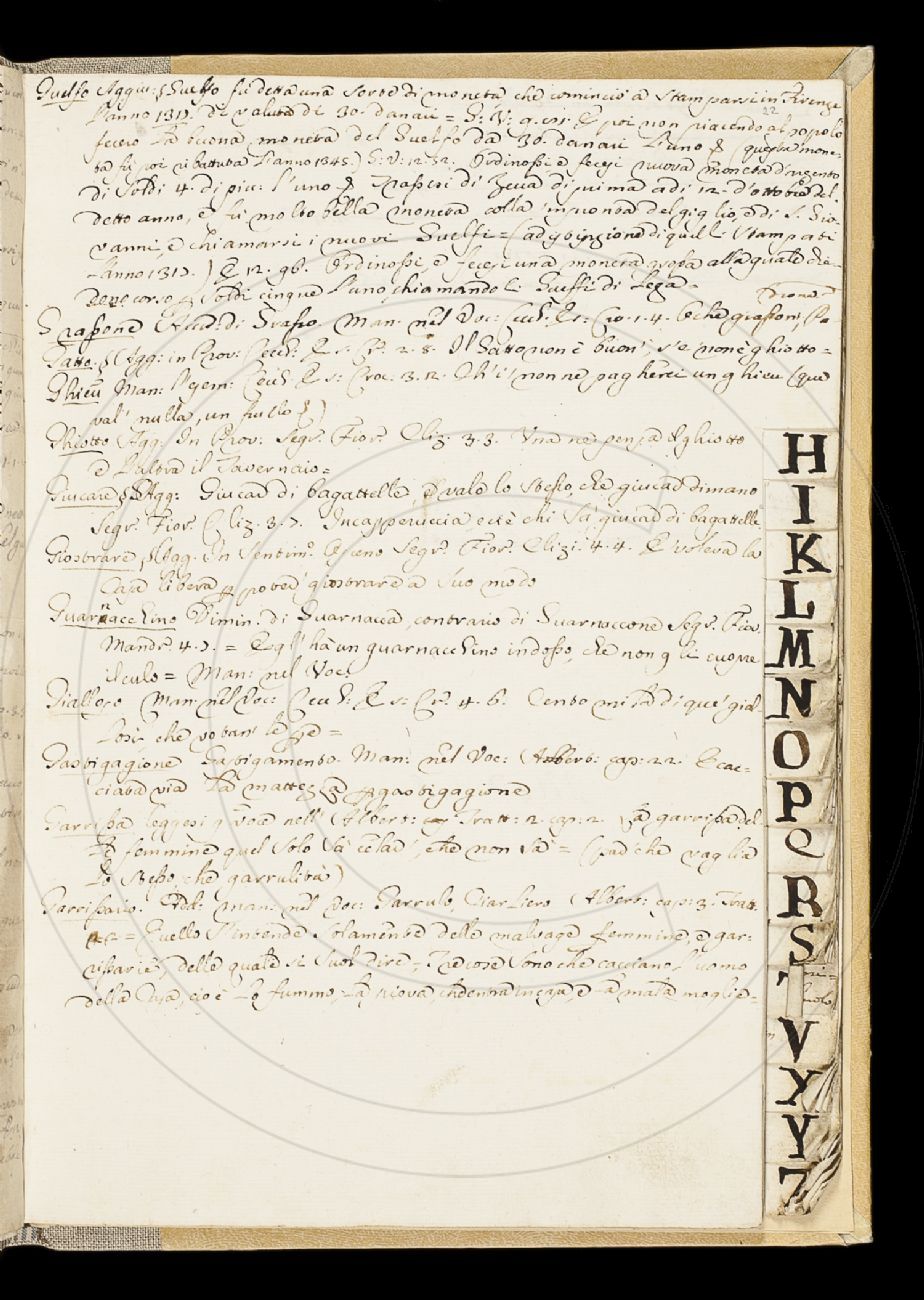 Guelfo Aggiu: § Guelfo fu detta una sorte di moneta che cominciò a stamparsi in Firenze
22
l'anno 1317. di valuta di 30. danari = G: V: 9. E poi non piacendo al popolo
fecero la buona moneta del Guelfo da 30. danari l'uno § (questa mone-
ta fu poi ribattuta l'anno 1345.) G: V: 12. 52. Ordinossi e fecesi nuova moneta d'argento
di soldi 4. di picc: l'uno di Zecca di prima adi 12. d'ottobre del
detto anno, e fu molto bella moneta colla 'mpronta del giglio, e di S. Gio-
vanni, e chiamarsi i nuovi Guelfi = (a distinzione di quelli stampati
l'anno 1317.) E 12. 96. Ordinossi, e fecesi una moneta grossa alla quale die-
dero corso p soldi cinque l'uno, chiamandoli Guelfi di Lega =
Grassone Man. nel Voc: Cecch.
Gatto. § Agg: in Prov: Cecch. 2. 8. Il Gatto non è buon', s'e' non è ghiotto =
Ghieu Man: Cecch. 3. 12. Ch'i' non ne pagherei un ghieu (que
val' nulla, un frullo)
Ghiotto (Agg. In Prov: Segr. Fior. Cliz. 3. 3. Una ne pensa il ghiotto
e l'altra il Tavernaio =
Giucare § Agg: Giucar di bagattelle, vale lo stesso, che giucar di mano
Segr. Fior. Cliz. 3. 7. Incapperuccia ecc è chi sa giucar di bagattelle
Giostrare § Agg. In sentim. osceno Segr. Fior. Clizi. 4. 4. E' voleva la
Casa libera p poter giostrare a suo modo
Guarnacchino Dimin. di Guarnacca, contrario di Guarnaccone Segr. Fior.
Mandr. 4. 7. = Egl' ha un guarnacchino indosso, che non gli cuopre
il culo = Man: nel Voc.
Gialloso Man: nel Voc: Cecch. 4. 6. Cento mila di que' gial
losi, che votan le
Gastigagione Gastigamento. Man: nel Voc: (Albert: cap: 22. E cac-
ciata via la mattezza p gastigagione
Garrissa leggesi q voce nell' (Albert: Tratt: 2. cap: 2. La garrissa del
le femmine quel solo sa celar, che non sa = (par che vaglia
lo stesso, che garrulità)
Garrissaio. Add: man: nel Voc: Garrulo, Ciarliero (Albert: cap: 3. Tratt.
= Quello s'intende solamente delle malvage femmine, e gar-
rissarie, delle quale si suol dire =, Tre cose sono che cacciano l'uomo
della Casa, cio è lo fummo, la piova in casa, e la mala moglie =
H
I
K
L
M
N
O
P
Q
R
S
T
V
X
Y
Z